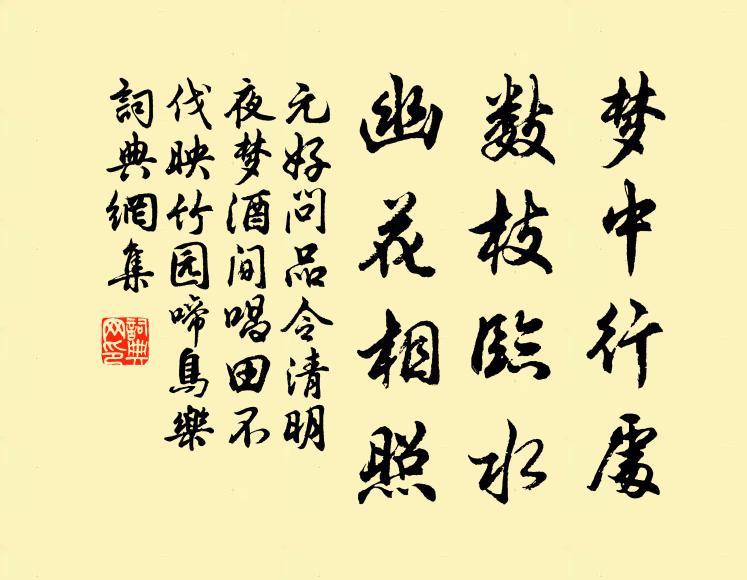 梦中行处
数枝临水
幽花相照
元好问品令清明
夜梦酒间唱田不
伐映竹园啼鸟乐
词典網集
詞典
网印